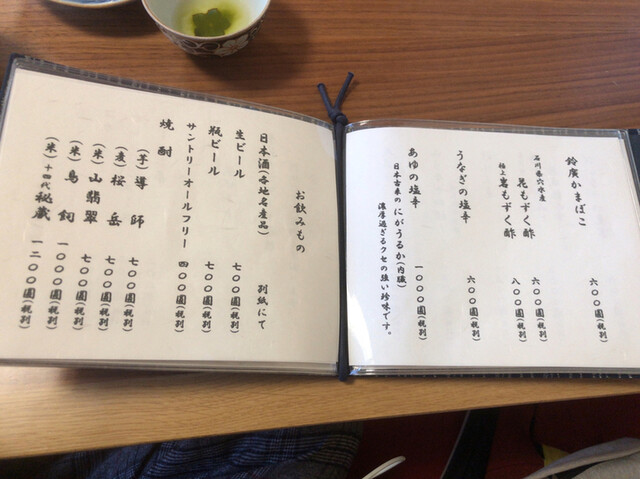 鈴廣かまぼこ 六〇〇圓(税別)
石川県穴水産
花もずく酢 六〇〇圓(税別)
極上 岩もずく酢 八〇〇圓(税別)
うなぎの塩辛 六〇〇圓(税別)
あゆの塩辛 一〇〇〇圓(税別)
日本古来の にがうるか(内臓)
濃厚過ぎるクセの強い珍味です。
お飲みもの
日本酒(各地名産品) 別紙にて
生ビール 七〇〇圓(税別)
瓶ビール 七〇〇圓(税別)
サントリーオールフリー 四〇〇圓(税別)
焼酎
(芋)導師 七〇〇圓(税別)
(麦)桜岳 七〇〇圓(税別)
(米)山翡翠 七〇〇圓(税別)
(米)鳥飼 一〇〇〇圓(税別)
(米)十四代 秘蔵 一二〇〇圓(税別)